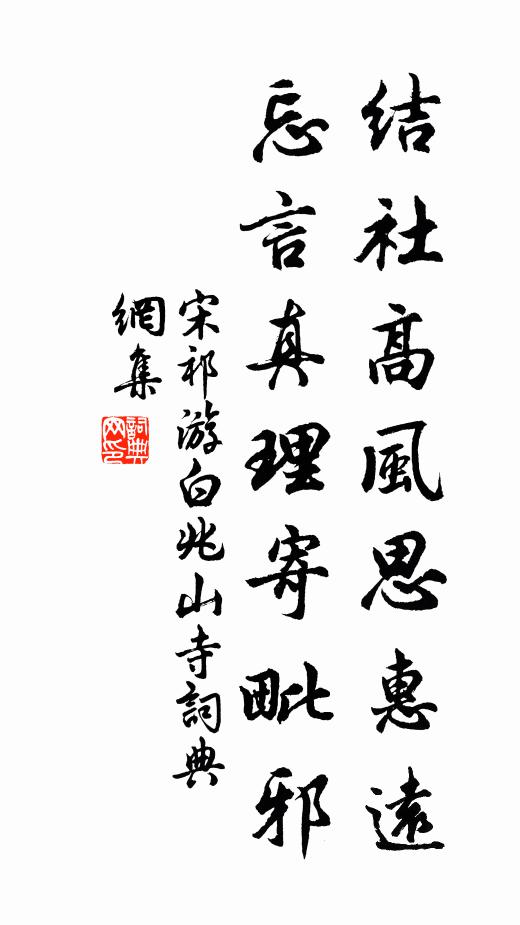 結社高風思惠遠
忘言真理寄毗邪
宋祁游白兆山寺詞典
網集
詞典
网印